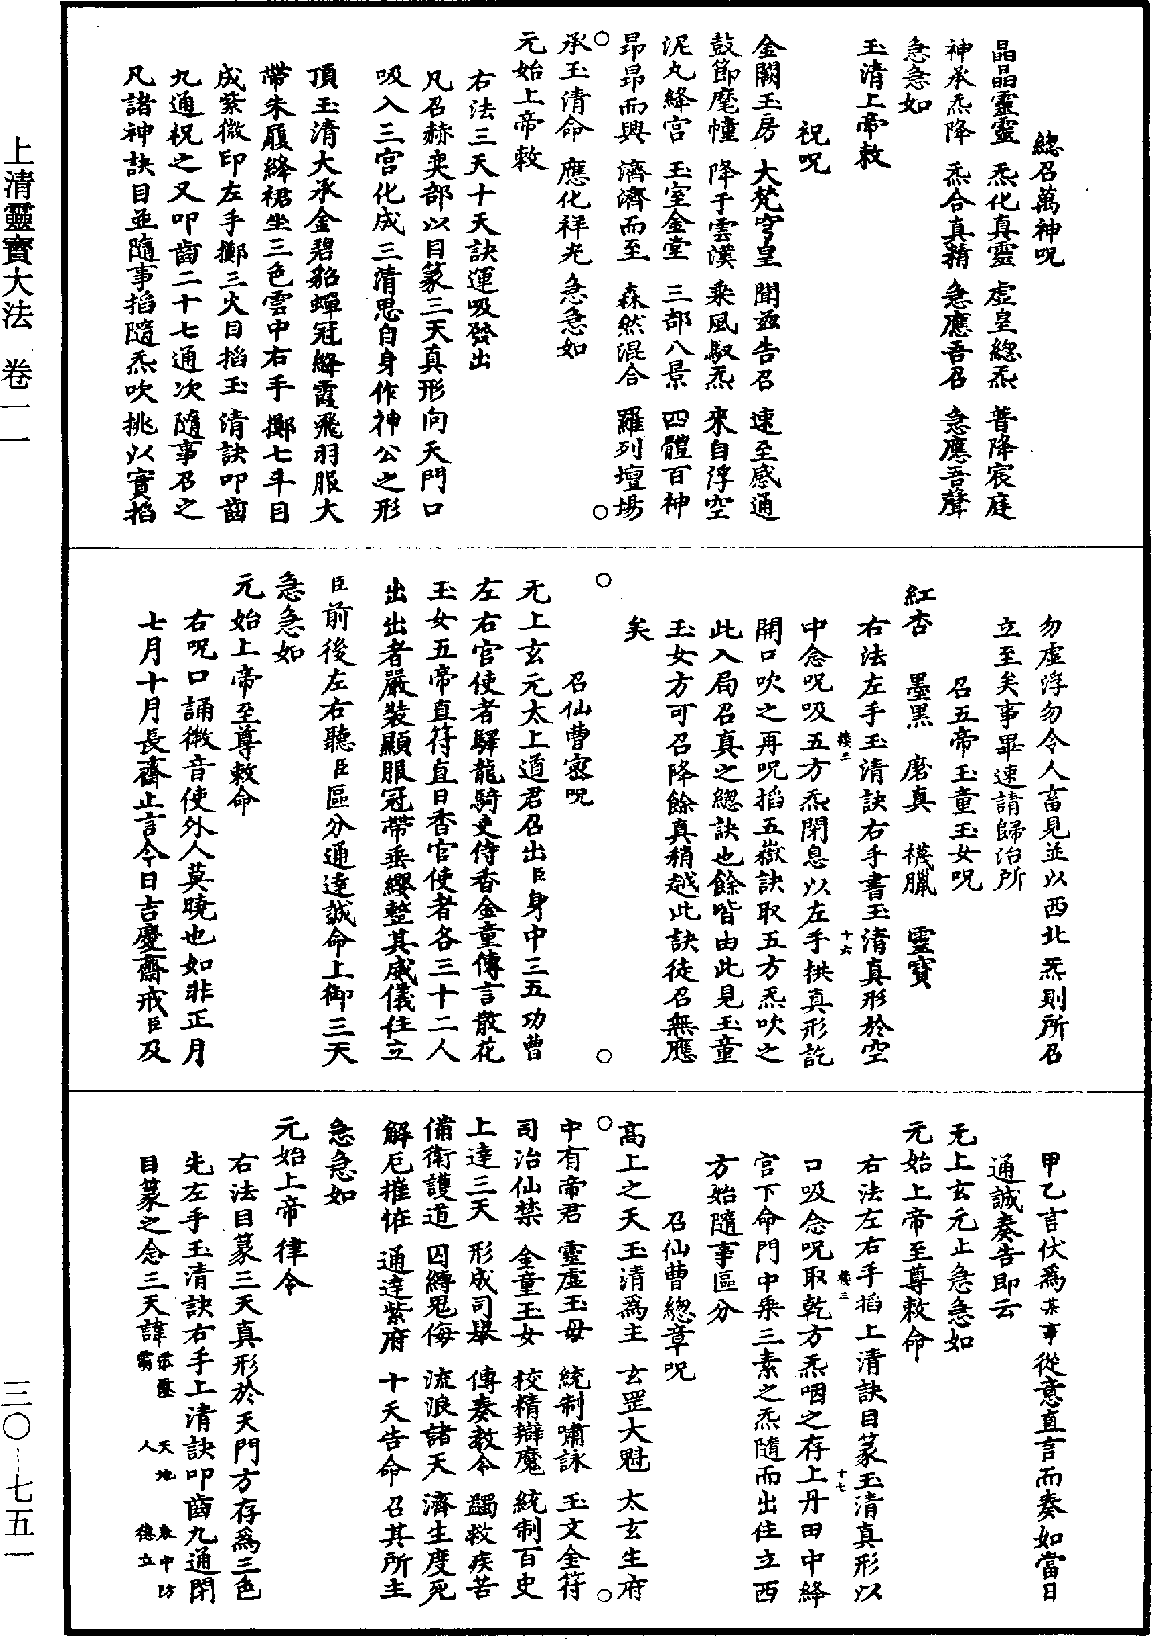 總召萬神呪
晶晶靈靈　炁化真靈　虛皇總炁　普降宸庭
神承炁降　炁合真精　急應吾召　急應吾聲
急急如
玉清上帝敕
祝呪
金闕玉房　大梵穹皇　聞玆告召　速至感通
鼓節麾幢　降于雲漢　乘風馭炁　來自浮空
泥丸絳宮　玉室金堂　三部八景　四體百神
昂昂而興　濟濟而至　森然混合　羅列壇場
承玉清命　應化祥光　急急如
元始上帝敕
右法三天十天訣運吸發出
凡召赫奕部以目篆三天真形向天門口
吸入三宮化成三清思自身作神公之形
頂玉清大承金碧貂蟬冠絳霞飛羽服大
帶朱履絳裙坐三色雲中右手擲七斗目
成紫微印左手擲三火目掐玉清訣叩齒
九通祝之又叩齒二十七通次隨事召之
凡諸神訣目並隨事掐隨炁吹挑以實掐
勿虛浮勿令人畜見並以西北炁則所召
立至矣事畢速請歸治所
召五帝玉童玉女呪
紅杏　墨黑　磨真　襪臘　靈寶
右法左手玉清訣右手書玉清真形於空
中念呪吸五方炁閉息以左手拱真形訖
開口吹之再呪掐五嶽訣取五方炁吹之
此入局召真之總訣也餘皆由此見玉童
玉女方可召降餘真稍越此訣徒召無應
矣
召仙曹密呪
无上玄元太上道君召出臣身中三五功曹
左右官使者驛龍騎吏侍香金童傳言散花
玉女五帝直符直日香官使者各三十二人
出出者嚴裝顯服冠帶垂纓整其威儀住立
臣前後左右聽臣區分通達誠命上御三天
急急如
元始上帝至尊敕命
右呪口誦微音使外人莫曉也如非正月
七月十月長齋止言今日吉慶齋戒臣及
甲乙言伏爲某事從意直言而奏如當日
通誠奏告即云
无上玄元止急急如
元始上帝至尊敕命
右法左右手掐上清訣目篆玉清真形以
口吸念呪取乾方炁咽之存上丹田中絳
宮下命門中乘三素之炁隨而出住立西
方始隨事區分
召仙曹總章呪
高上之天　玉清爲主　玄罡大魁　太玄生府
中有帝君　靈虛玉母　統制嘯詠　玉文金符
司治仙禁　金童玉女　校精辯魔　統制百史
上達三天　形成司舉　傳奏教令　蠲救疾苦
備衛護道　囚縛鬼侮　流浪諸天　濟生度死
解厄摧怪　通達紫府　十天告命　召其所主
急急如
元始上帝律令
右法目篆三天真形於天門方存爲三色
先左手玉清訣右手上清訣叩齒九通閉
目篆之念三天諱
上清靈寶大法　卷一一
三〇—七五一